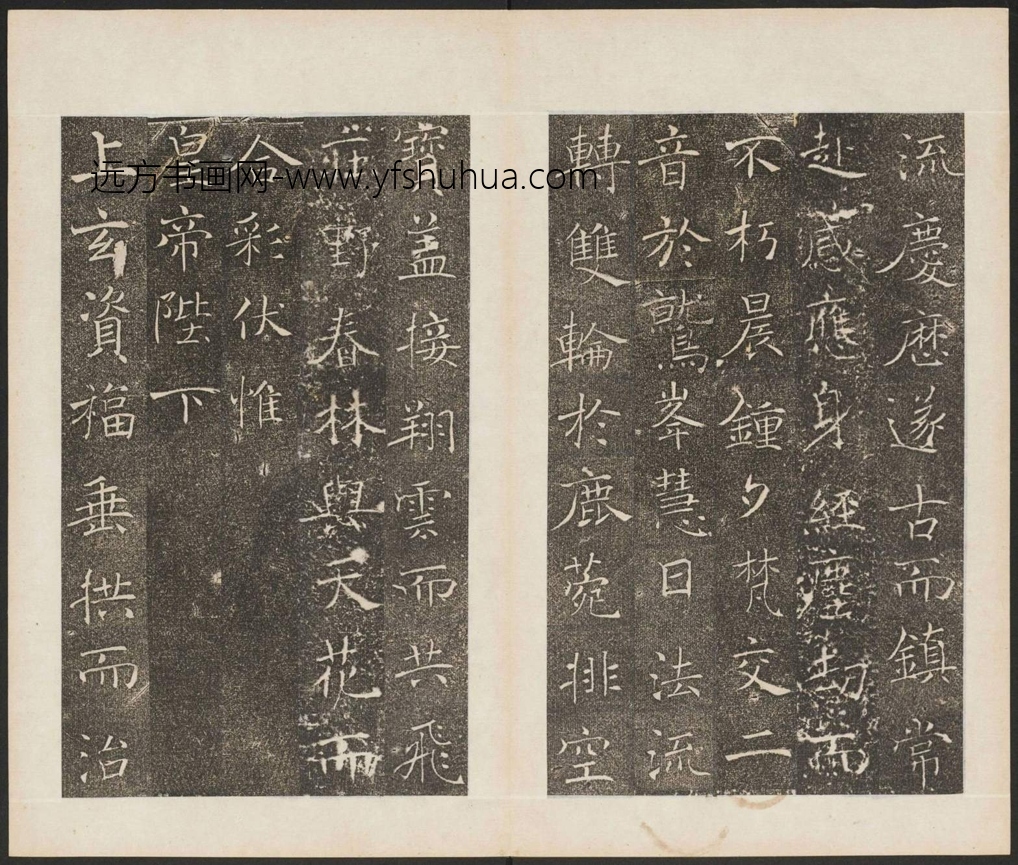 流慶歷遂古而鎮常
赴感應身經塵劫而
不朽晨鍾夕梵交二
音於鷲峯慧日法流
轉雙輪於鹿菀排空
寶盖接翔雲而共飛
莊野春林與天花而
合彩伏惟
皇帝陛下
上玄資福垂拱而治
远方书画网-www.yfshuhua.com